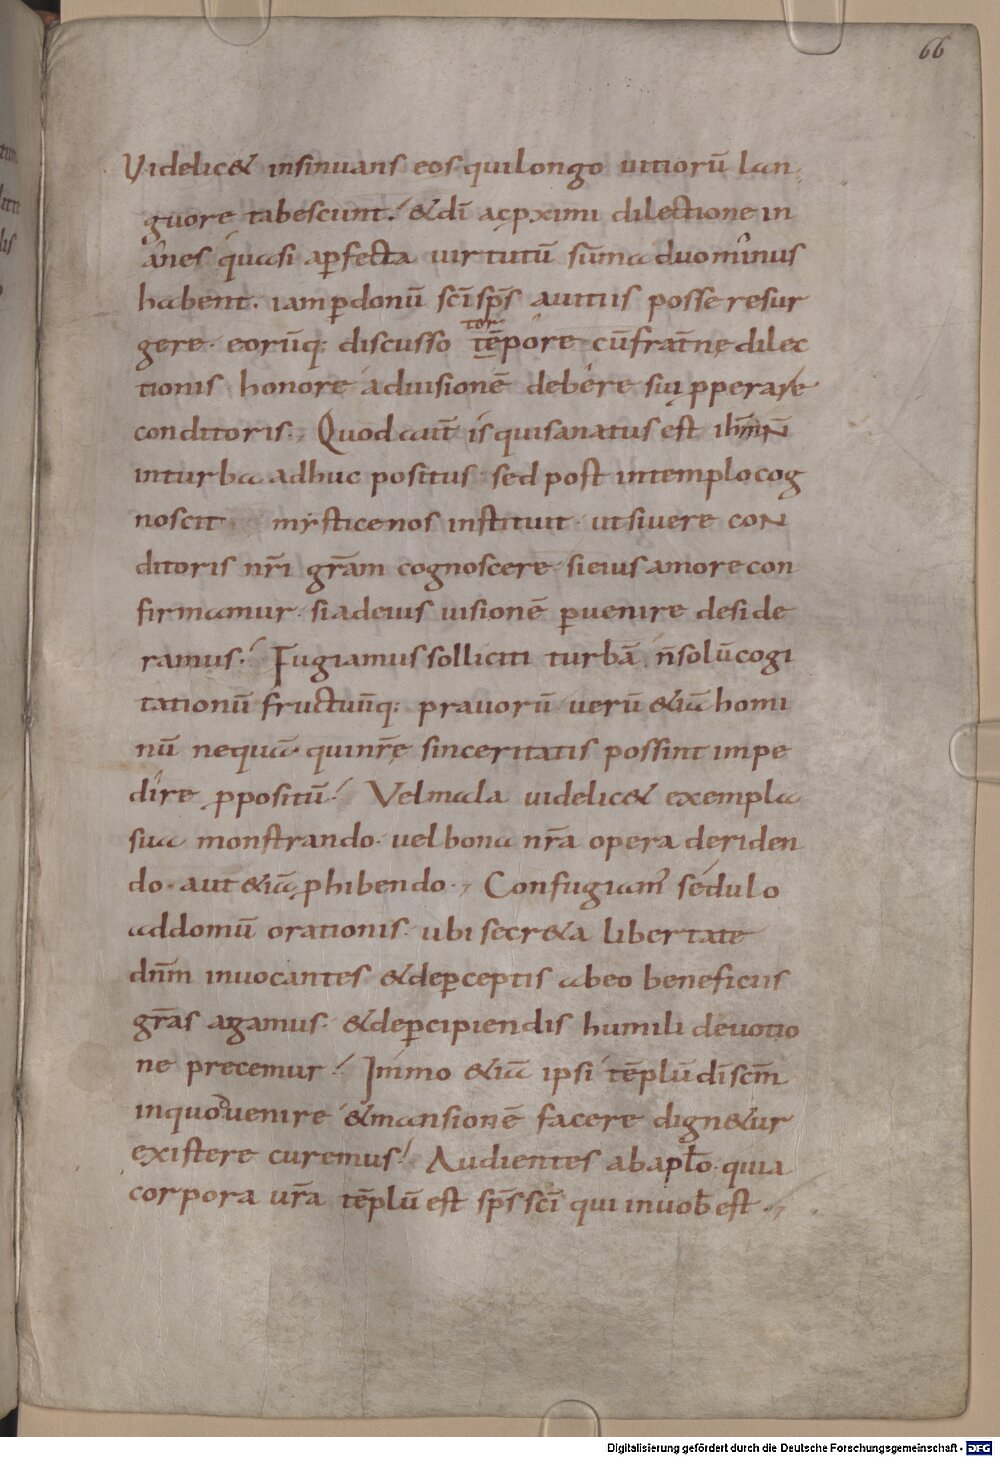 66
Videlic& insinuans eos qui longo uitiorū lan
guore tabescunt. &dī ac p̱ximi dilectione in
anes quasi a p̄fecta uirtutū sūma duo minus
habent. iam p̄ donū sc̄i sp̄s a uitiis posse resur
gere. eorūq; discusso tēpore cū frat̄nę dilec
tor
tionis honore ad uisionē debere sui p̱perare
conditoris., Quod aut̄ is qui sanatus est ih̄m N̄
in turba adhuc positus sed post in templo cog
noscit mystice nos instituit ut si uere coN
ditoris nr̄i gr̄am cognoscere si eius amore con
firmamur si ad eius uisionē p̄uenire deside
ramus. Fugiamus solliciti turbā n̄ solū cogi
tationū fructuūq; prauorū uerū &iā homi
nū nequā qui nr̄ę sinceritatis possint impe
dire p̱positū. Vel mala uidelic& exempla
sua monstrando. uel bona nr̄a opera deriden
do. aut &iā p̱hibendo., Confugiam' sedulo
ad domū orationis. ubi secr&a libertate
dn̄m inuocantes &de p̄ceptis ab eo beneficiis
gr̄as agamus. &de p̄cipiendis humili deuotio
ne precemur. Immo &iā ipsi tēplū dī sc̄m
in quo d uenire &mansionē facere dign&ur
existere curemus. Audientes ab apl̄o. quia
corpora ur̄a tēplū est sp̄s sc̄i qui in uob̄ est.,
Digitalisierung gefördert durch die Deutsche Forschungsgemeinschaft - DFG